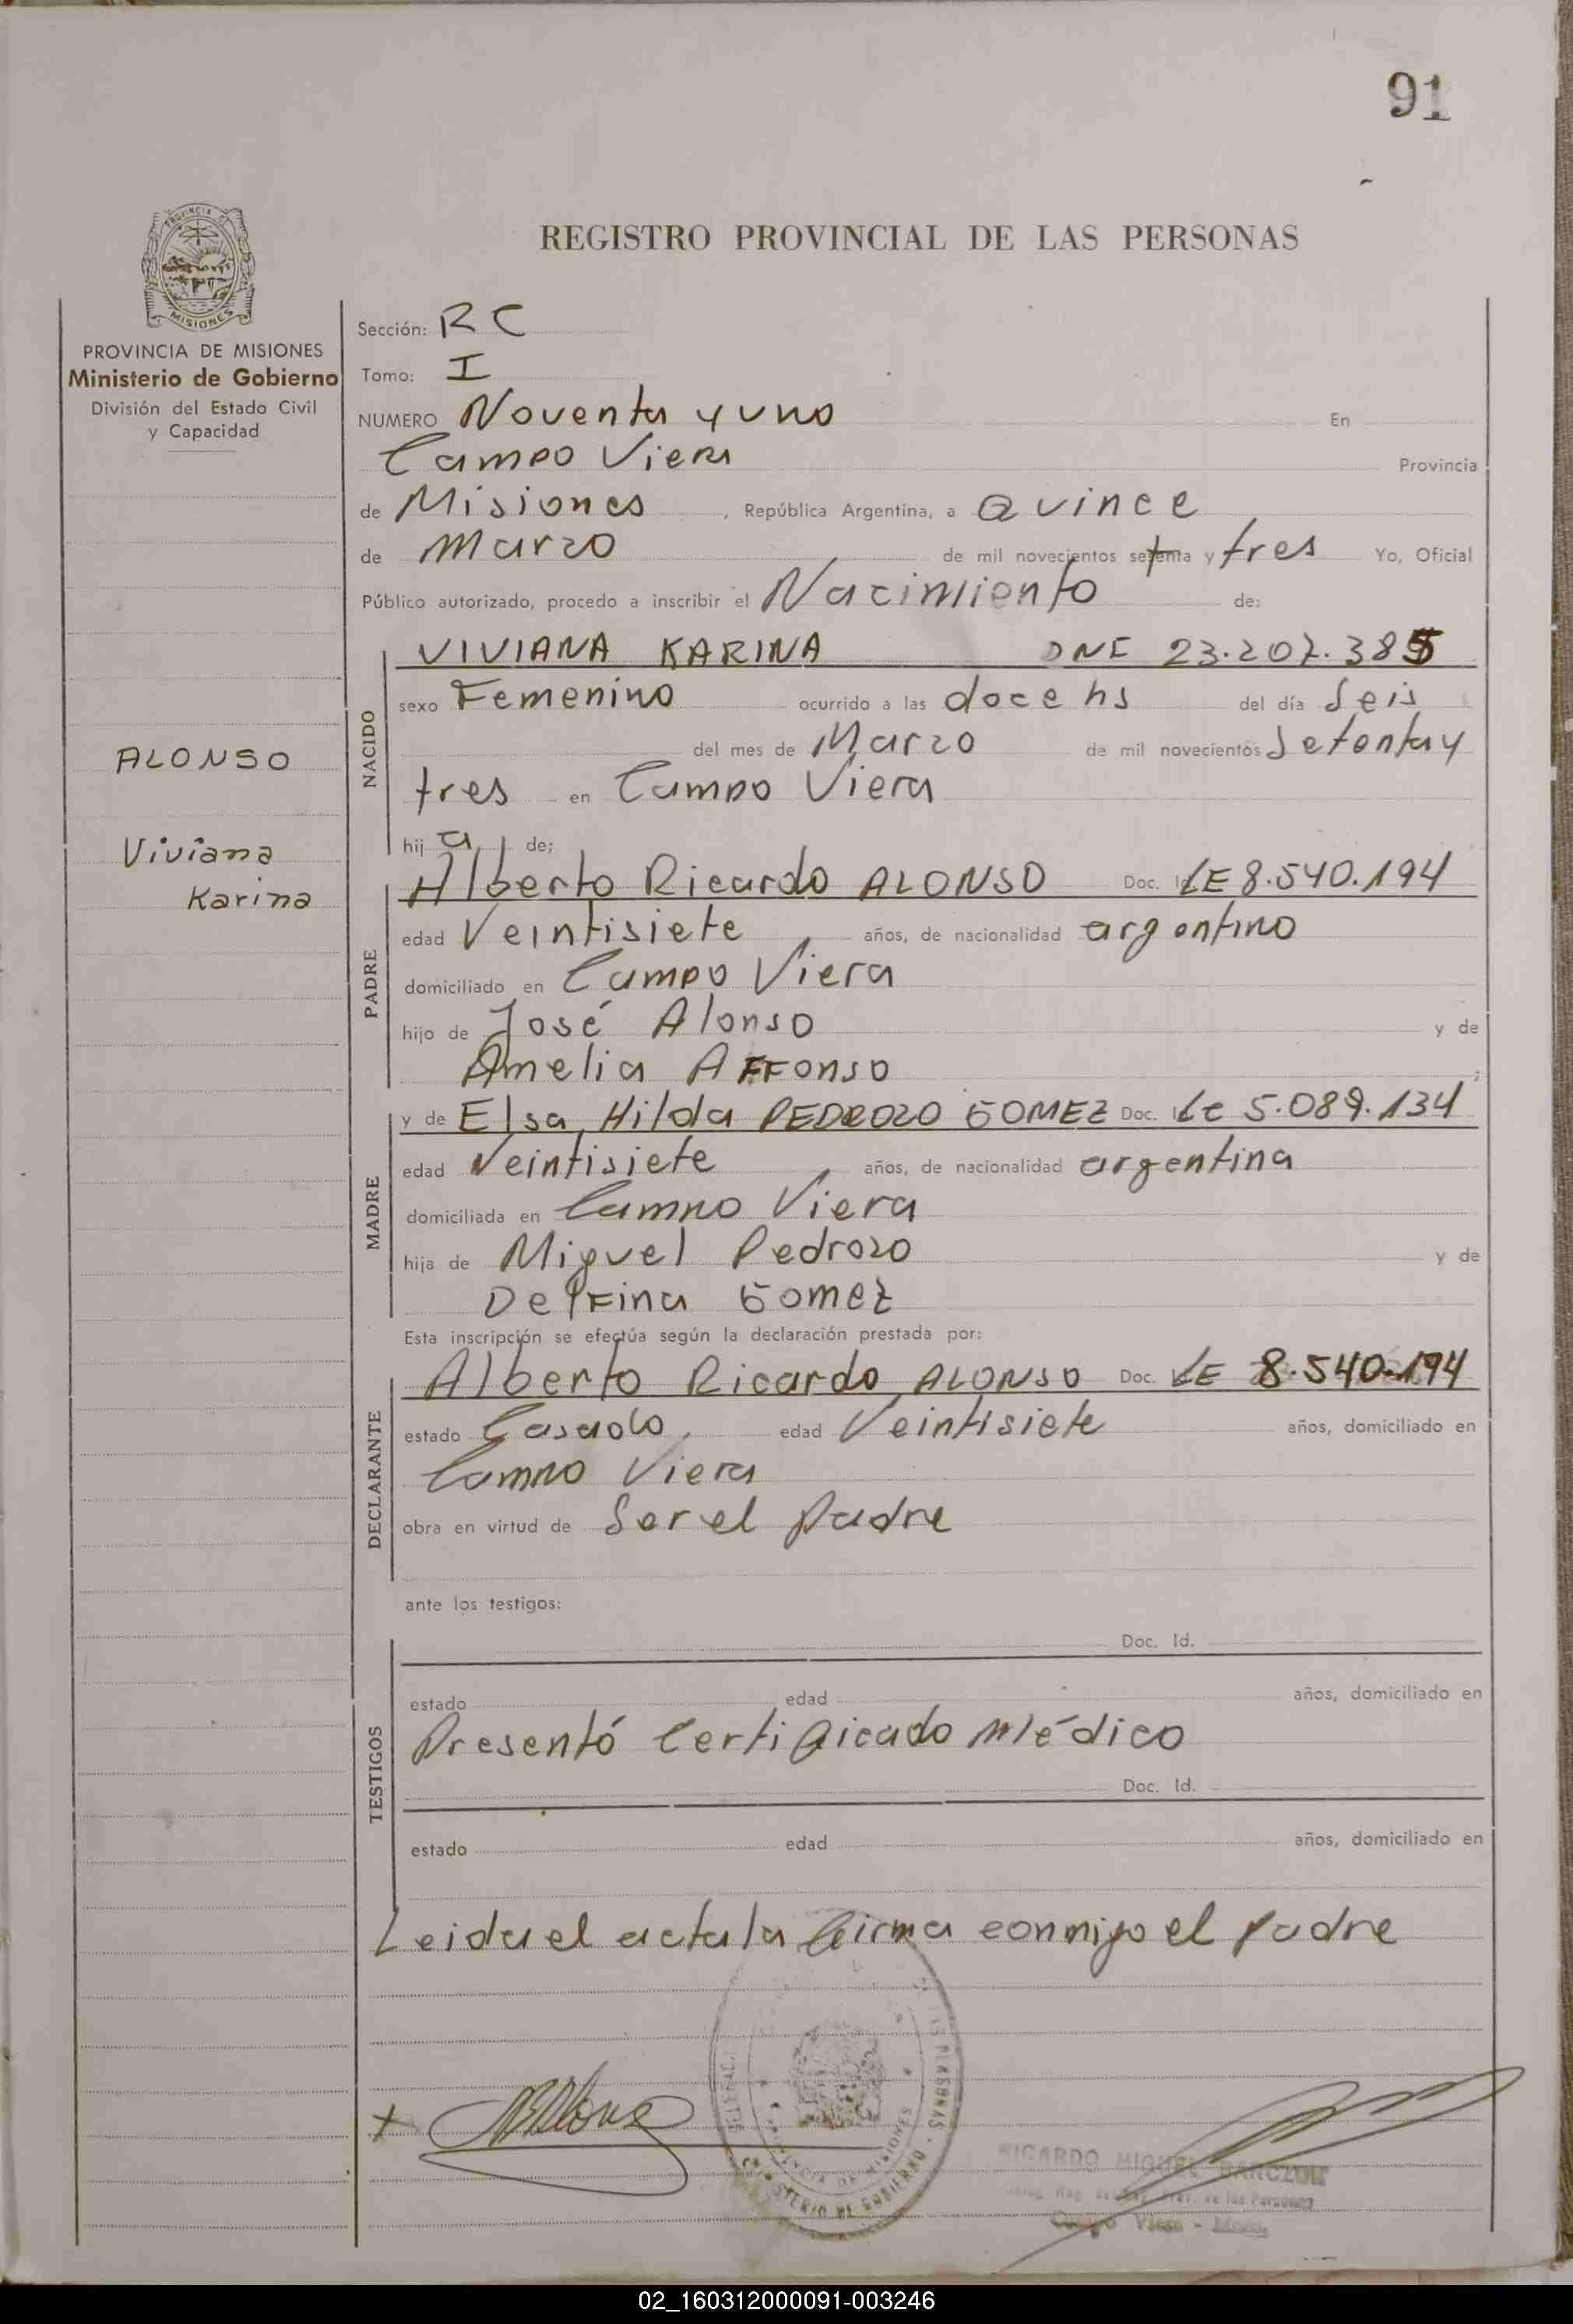 91
REGISTRO PROVINCIAL DE LAS PERSONAS
PROVINCIA DE MISIONES
Ministerio de Gobierno
División del Estado Civil
y Capacidad
ALONSO
Viviana
Karina
Sección: RC
Tomo: I
NUMERO Noventa y uno En
Campo Viera Provincia
de Misiones, República Argentina, a Quince
de Marzo de mil novecientos setenta y tres Yo, Oficial
Público autorizado, procedo a inscribir el Nacimiento de:
NACIDO
VIVIANA KARINA DNI 23.207.385
sexo Femenino ocurrido a las doce hs del día Seis
del mes de Marzo de mil novecientos Setenta y
tres en Campo Viera
hija de;
PADRE
Alberto Ricardo ALONSO Doc. LE 8.540.194
edad Veintisiete, años, de nacionalidad argentino
domiciliado en Campo Viera
hijo de José Alonso y de
Amelia AFFonso ;
MADRE
y de Elsa Hilda PEDROZO GOMEZ Doc. Lc 5.089.134
edad Veintisiete, años, de nacionalidad argentina
domiciliada en Campo Viera
hija de Miguel Pedrozo y de
Delfina Gomez
Esta inscripción se efectúa según la declaración prestada por:
DECLARANTE
Alberto Ricardo ALONSO Doc. LE 8.540.194
estado Casado, edad Veintisiete años, domiciliado en
Campo Viera
obra en virtud de Ser el padre
ante los testigos:
TESTIGOS
Doc. Id.
estado edad años, domiciliado en
Presentó Certificado Médico
Doc. Id.
estado edad años, domiciliado en
Leida el acta la firma conmigo el padre
MINISTERIO DE GOBIERNO
PROVINCIA DE MISIONES
RICARDO MIGUEL
Campo Viera - Mnes.
02_160312000091-003246